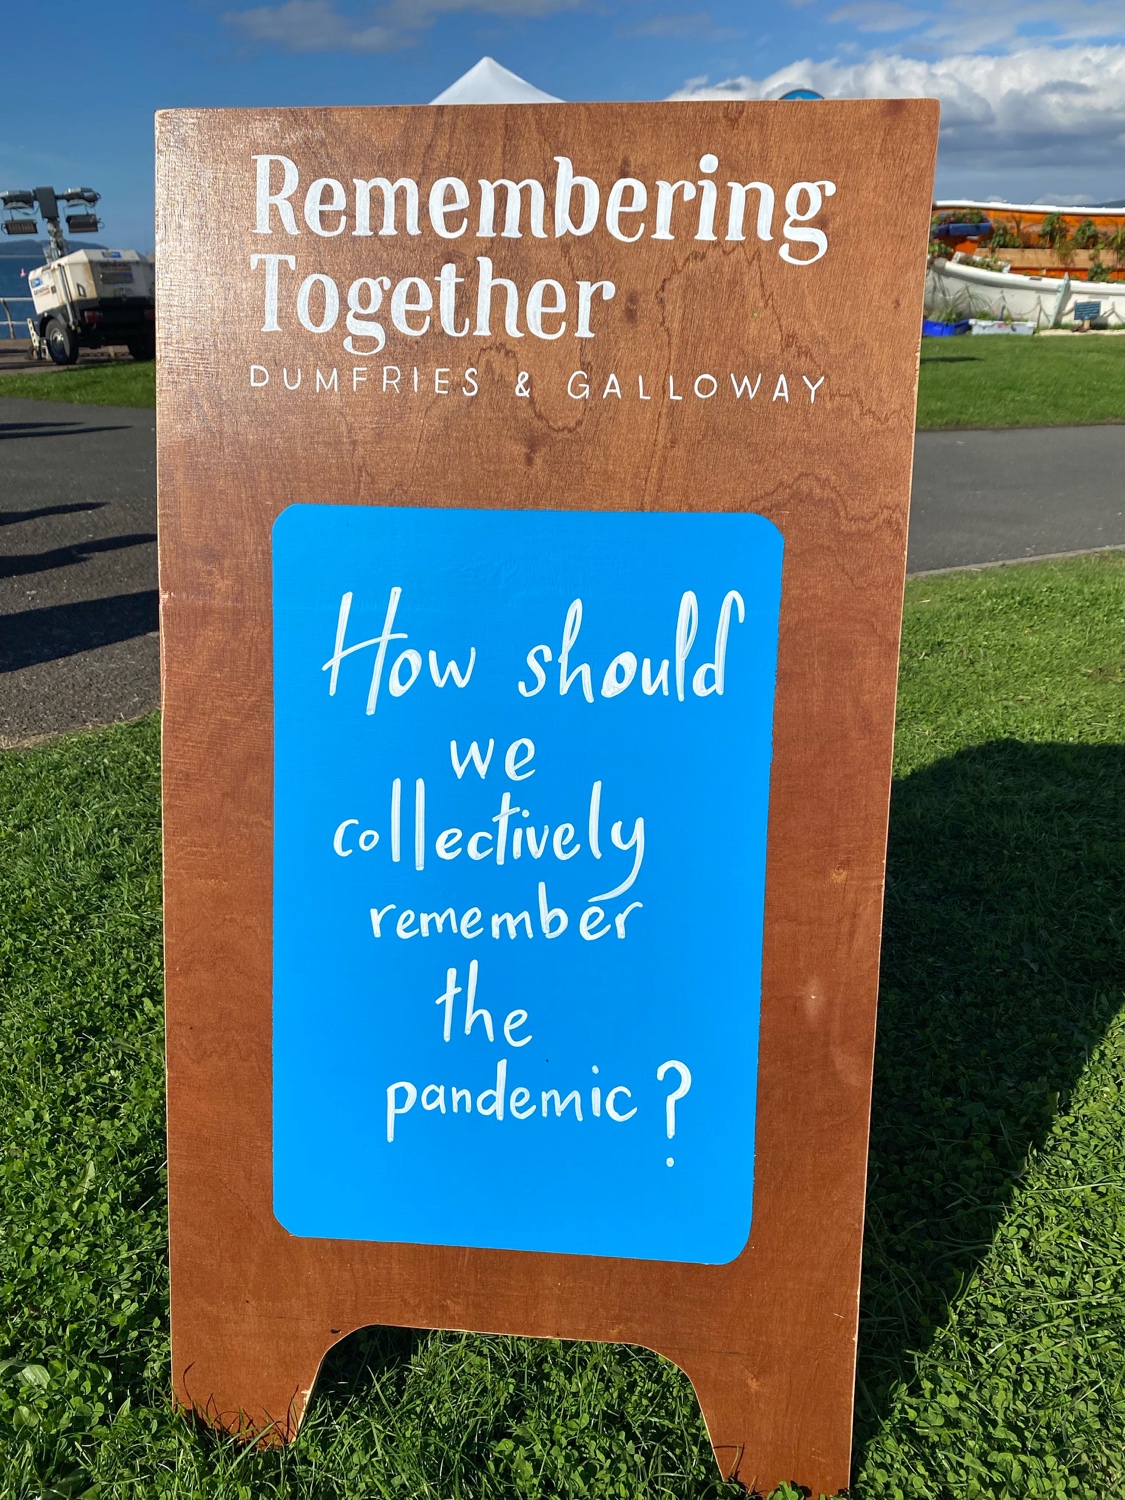 Remembering
Together
DUMFRIES & GALLOWAY
How should
we
collectively
remember
the
pandemic?